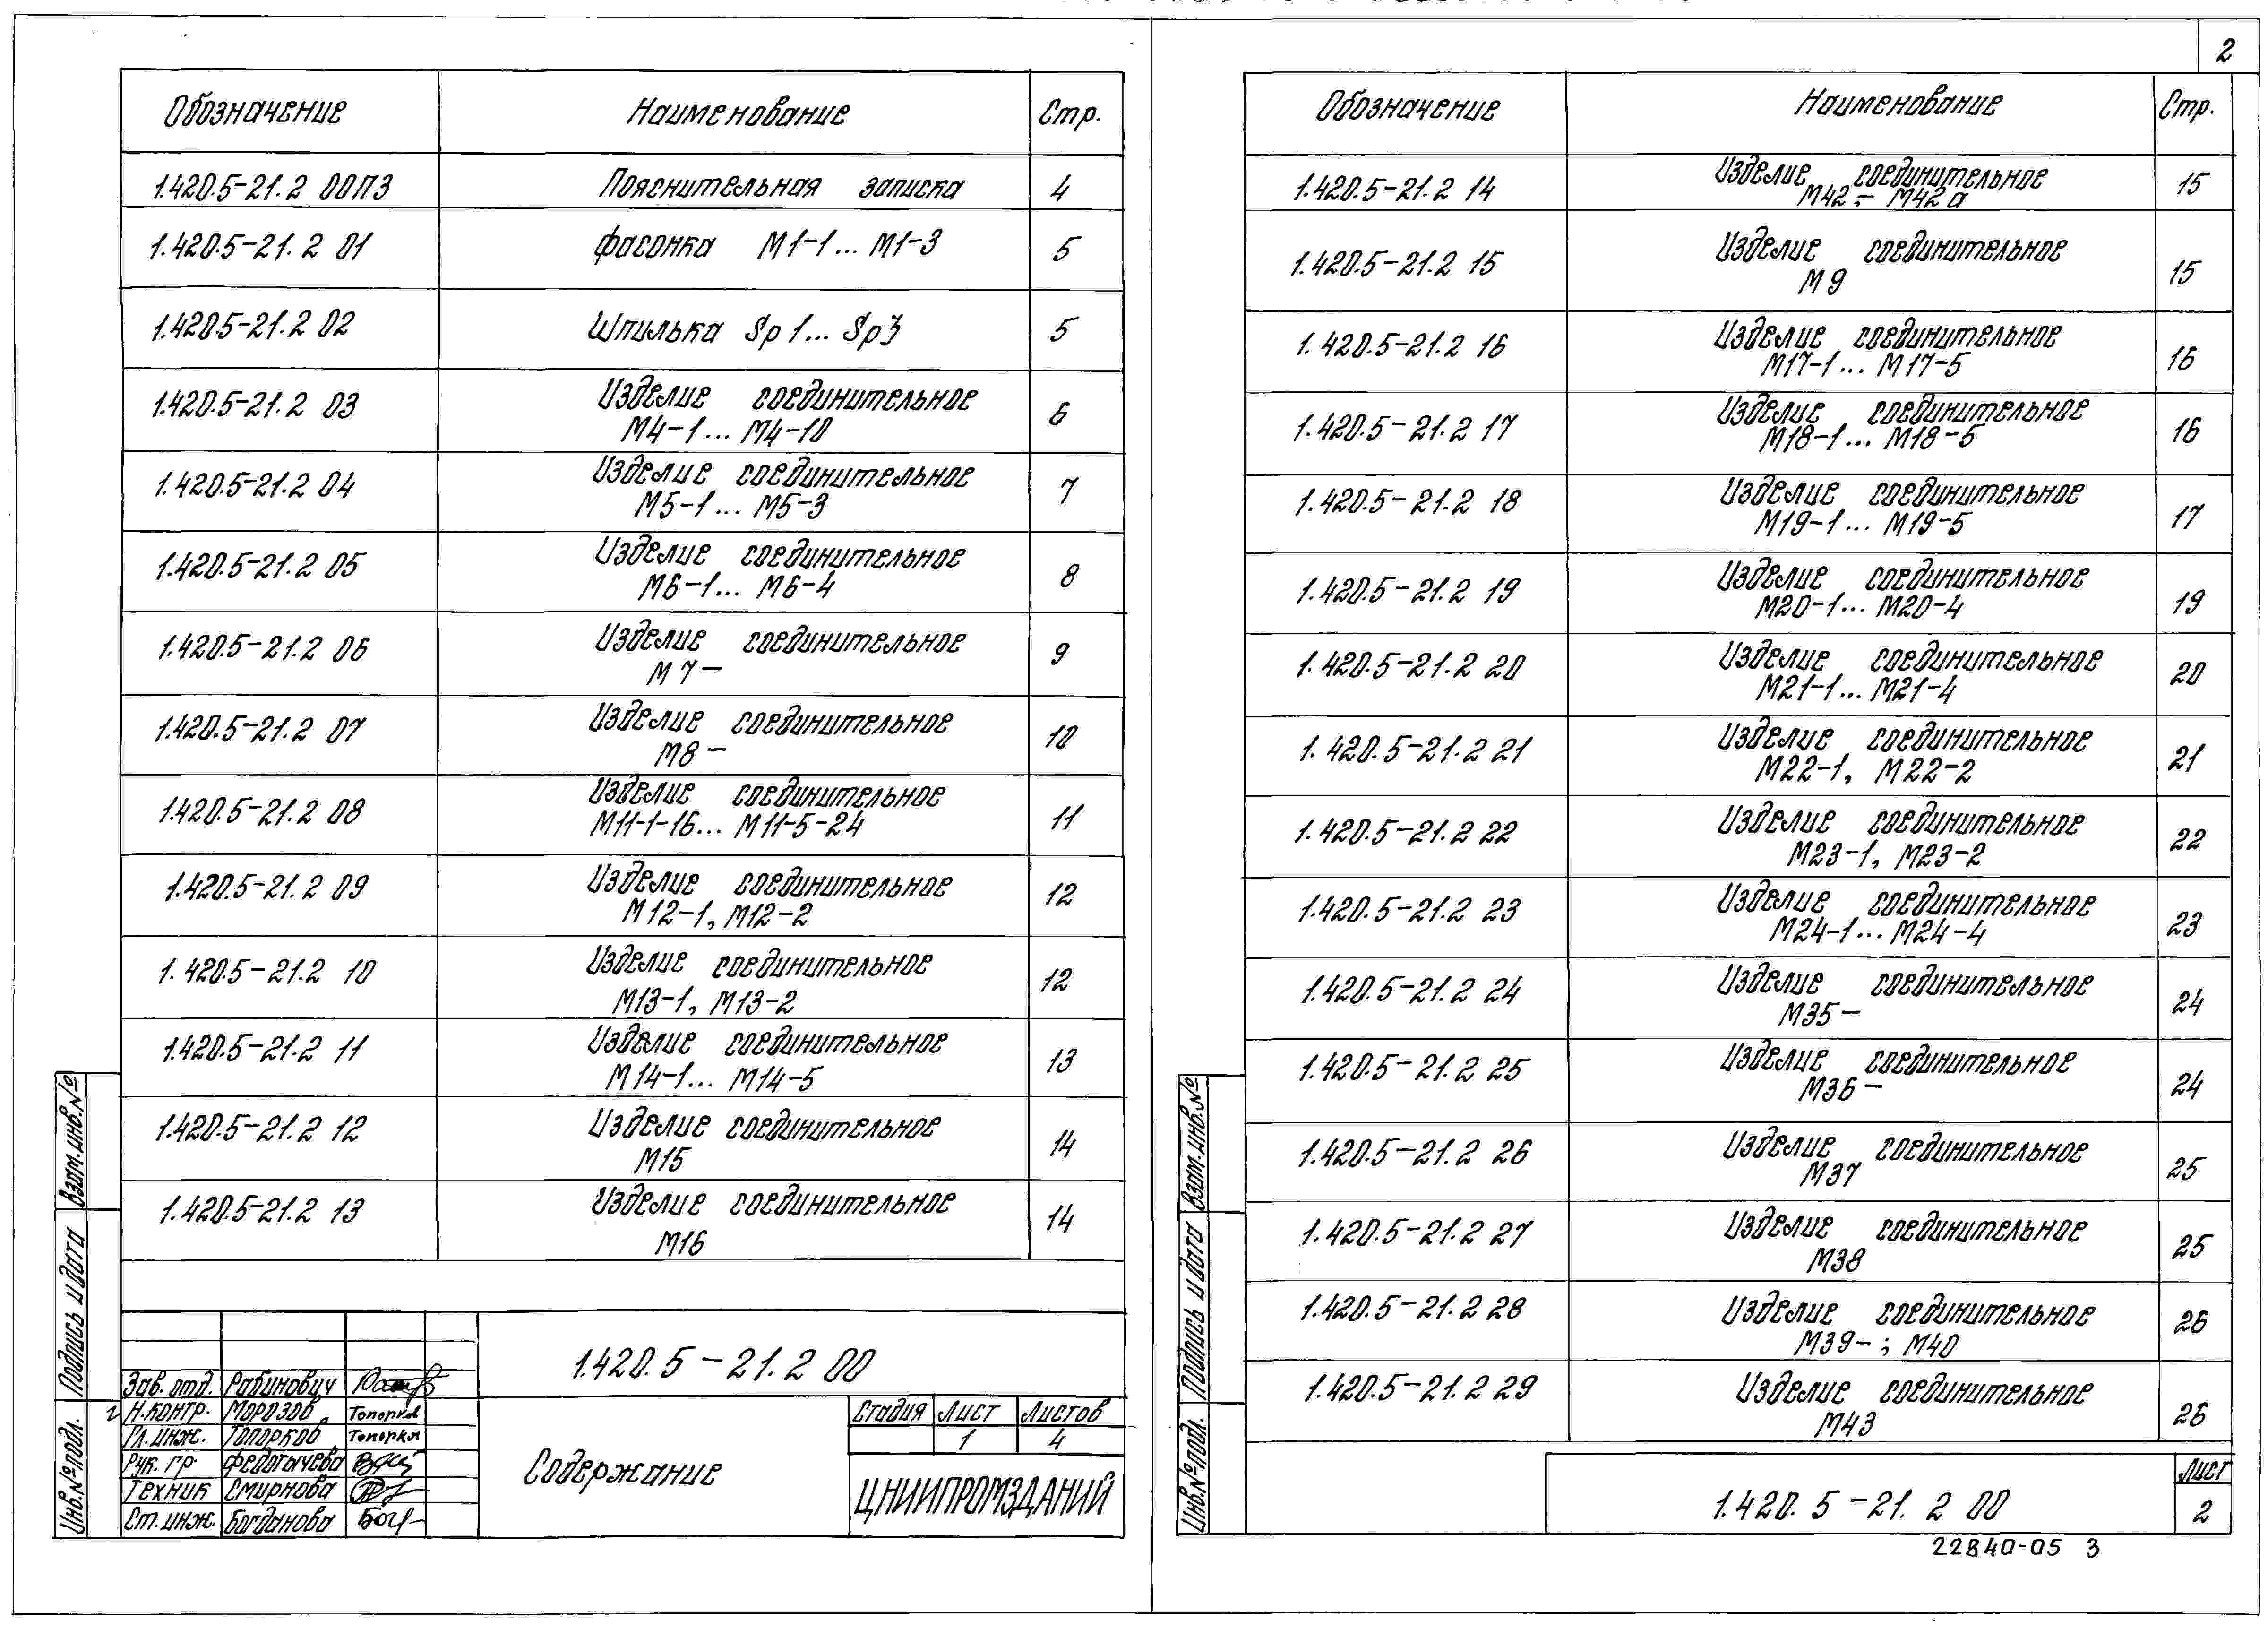 Обозначение Наименование Стр.
1.420.5-21.2 00ПЗ Пояснительная записка 4
1.420.5-21.2 01 Фасонка М1-1... М1-3 5
1.420.5-21.2 02 Шпилька Sp1... Sp3 5
1.420.5-21.2 03 Изделие соединительное 6
М4-1... М4-10
1.420.5-21.2 04 Изделие соединительное 7
М5-1... М5-3
1.420.5-21.2 05 Изделие соединительное 8
М6-1... М6-4
1.420.5-21.2 06 Изделие соединительное 9
М7-
1.420.5-21.2 07 Изделие соединительное 10
М8-
1.420.5-21.2 08 Изделие соединительное 11
М11-1-16... М11-5-24
1.420.5-21.2 09 Изделие соединительное 12
М12-1, М12-2
1.420.5-21.2 10 Изделие соединительное 12
М13-1, М13-2
1.420.5-21.2 11 Изделие соединительное 13
М14-1... М14-5
1.420.5-21.2 12 Изделие соединительное 14
М15
1.420.5-21.2 13 Изделие соединительное 14
М16
Взам.инв.№
Подпись и дата
Инв.№подл.
1.420.5-21.2 00
Зав. отд. Рабинович
Н.контр. Морозов Топорков
Гл.инж. Топорков Топорков
Рук. гр. Федотычева
Техник Смирнова
Ст.инж. Богданова
Содержание
Стадия Лист Листов
1 4
ЦНИИПРОМЗДАНИЙ
2
Обозначение Наименование Стр.
1.420.5-21.2 14 Изделие соединительное 15
М42-; М42а
1.420.5-21.2 15 Изделие соединительное 15
М9
1.420.5-21.2 16 Изделие соединительное 16
М17-1... М17-5
1.420.5-21.2 17 Изделие соединительное 16
М18-1... М18-5
1.420.5-21.2 18 Изделие соединительное 17
М19-1... М19-5
1.420.5-21.2 19 Изделие соединительное 19
М20-1... М20-4
1.420.5-21.2 20 Изделие соединительное 20
М21-1... М21-4
1.420.5-21.2 21 Изделие соединительное 21
М22-1, М22-2
1.420.5-21.2 22 Изделие соединительное 22
М23-1, М23-2
1.420.5-21.2 23 Изделие соединительное 23
М24-1... М24-4
1.420.5-21.2 24 Изделие соединительное 24
М35-
1.420.5-21.2 25 Изделие соединительное 24
М36-
1.420.5-21.2 26 Изделие соединительное 25
М37
1.420.5-21.2 27 Изделие соединительное 25
М38
1.420.5-21.2 28 Изделие соединительное 26
М39-; М40
1.420.5-21.2 29 Изделие соединительное 26
М43
Взам.инв.№
Подпись и дата
Инв.№подл.
1.420.5-21.2 00
Лист
2
22840-05 3